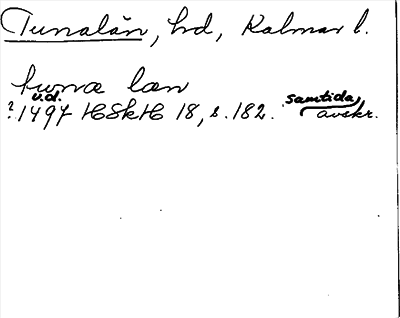 Tunalän, hd, Kalmar l.
tunæ læn
u.d.
?1497 HSkH 18, s. 182. samtida avskr.